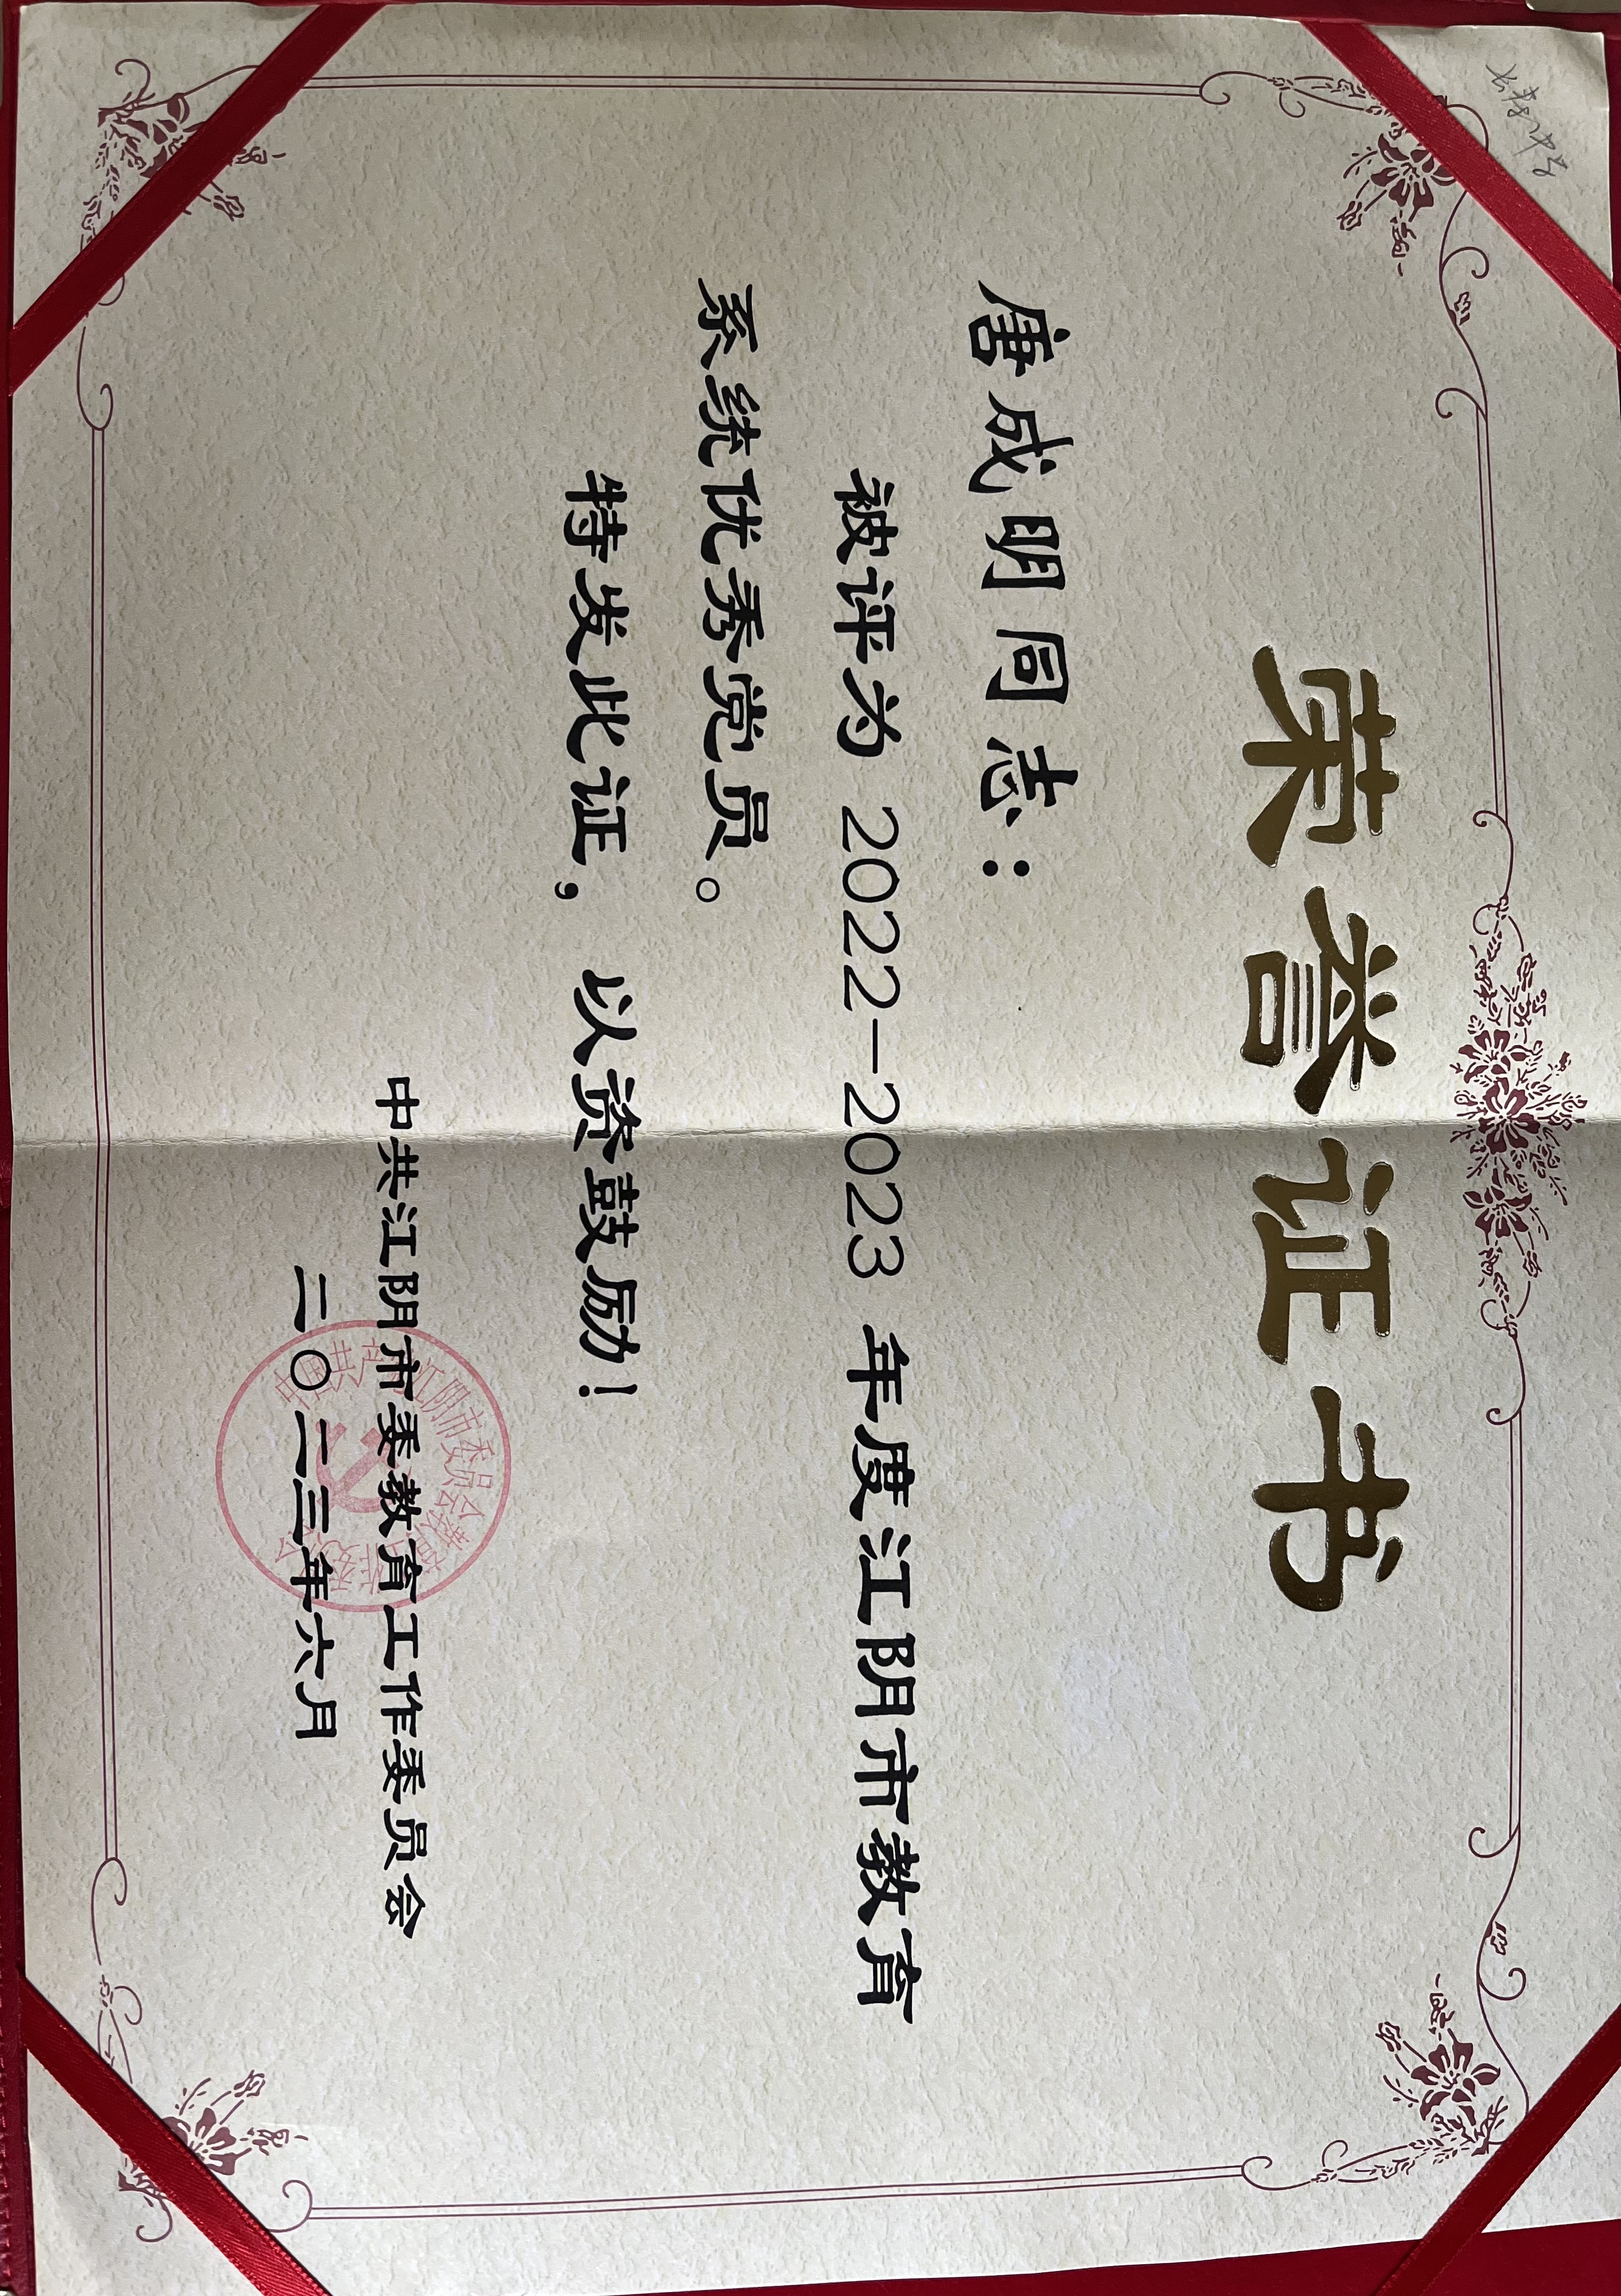 荣誉证书
唐成明同志：
被评为 2022—2023 年度江阴市教育
系统优秀党员。
特发此证，以资鼓励！
中共江阴市委教育工作委员会
二〇二三年六月